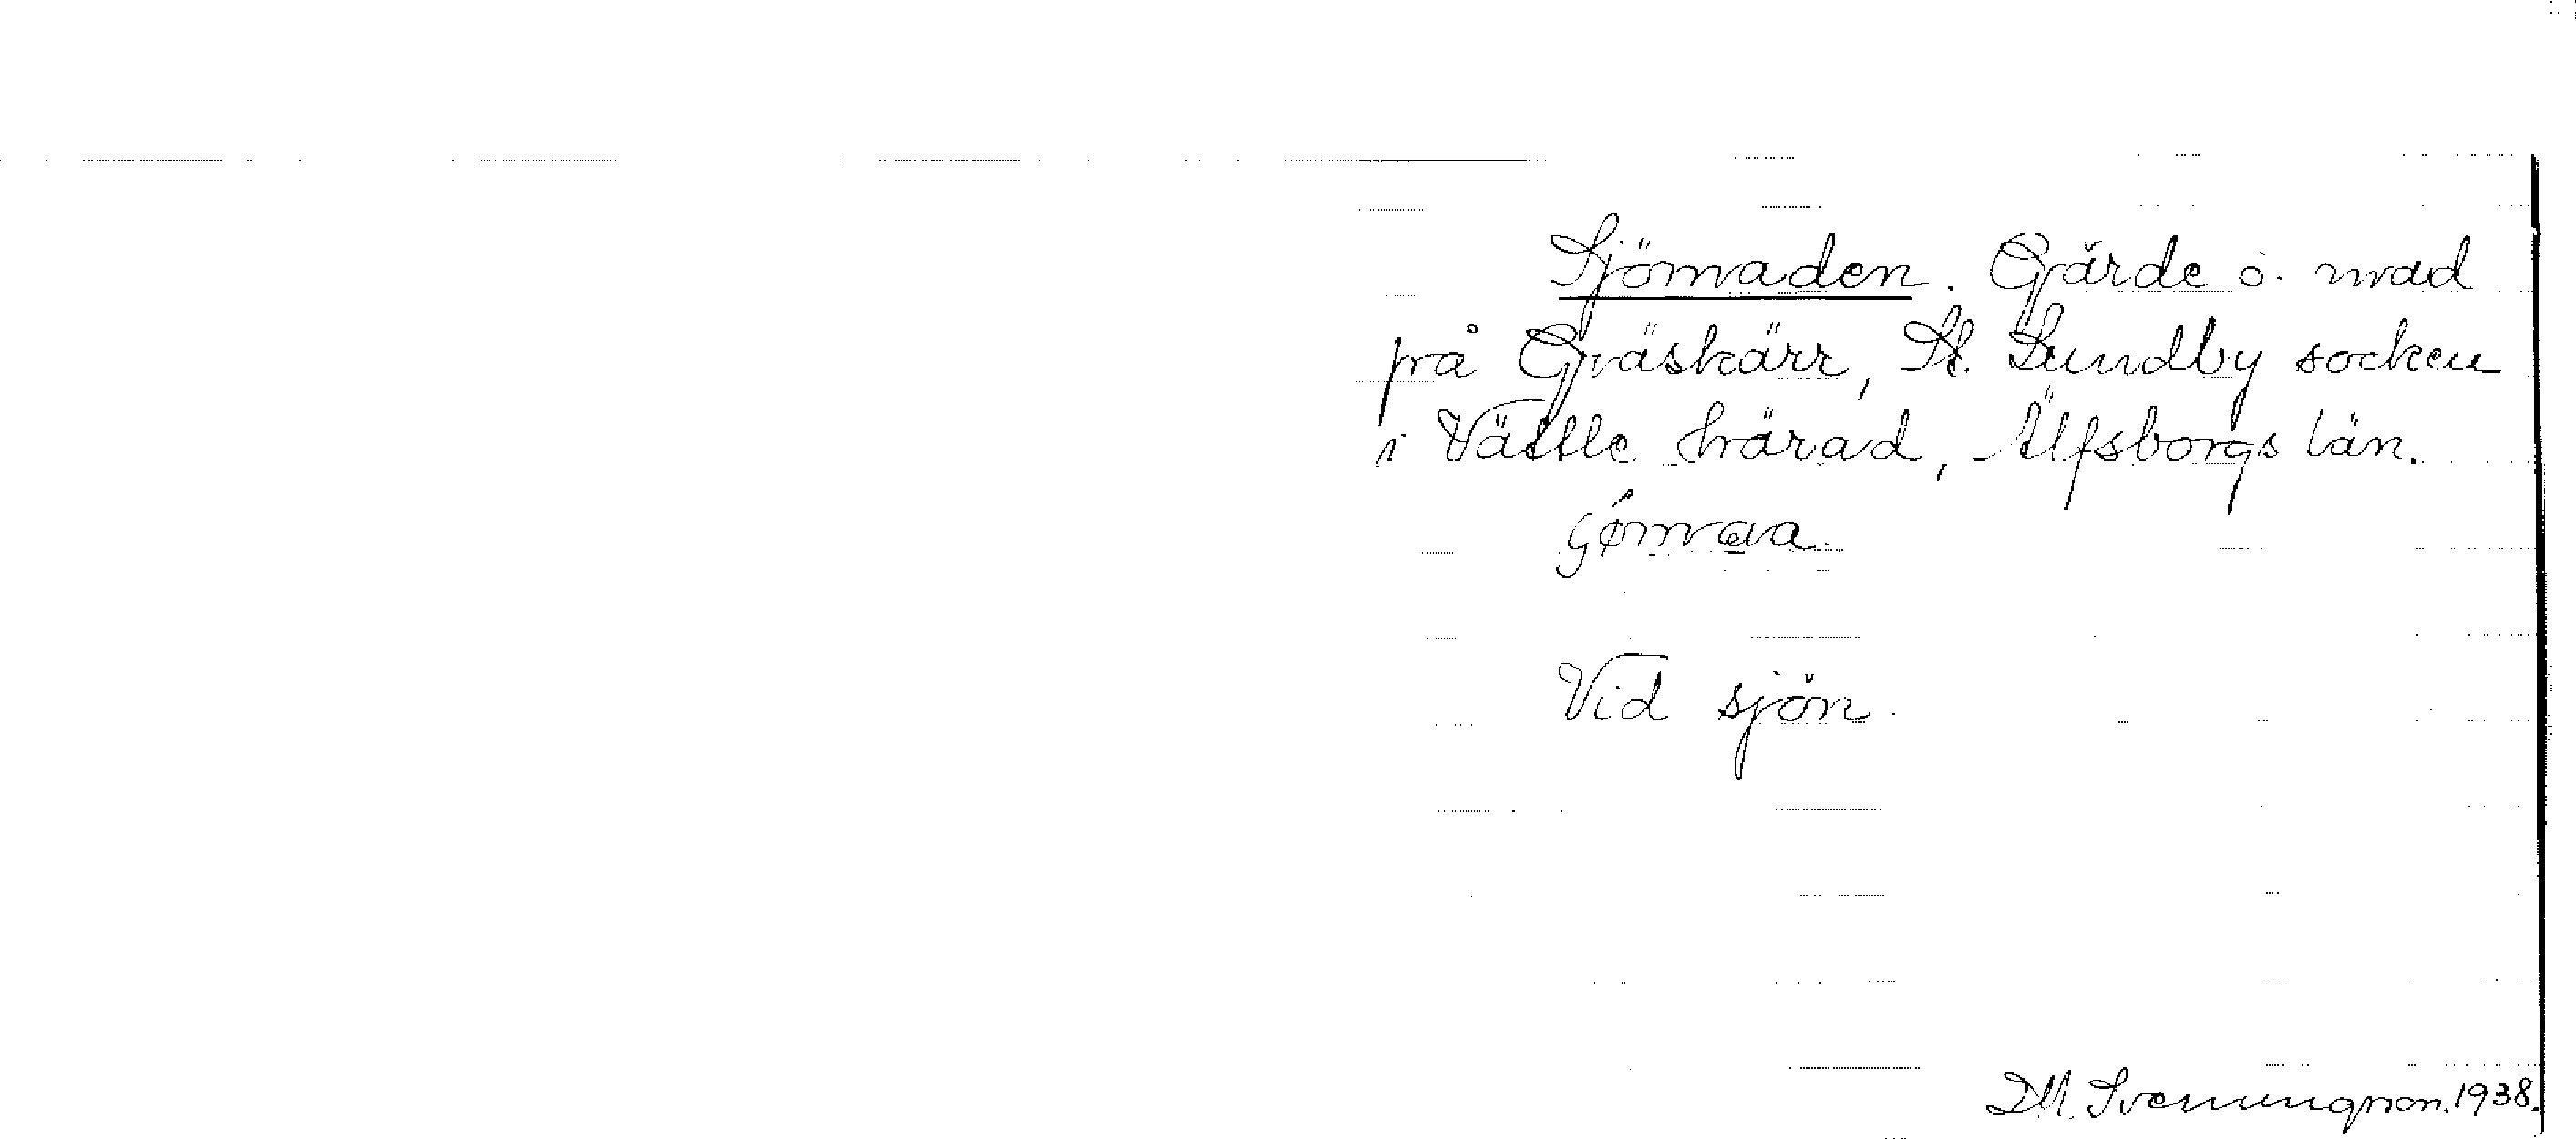 Sjömaden. Gärde o. mad
på Gräskärr, St. Lundby socken
i Vättle härad, Älfsborgs län.
Vid sjön.
Svenungsson. 1938.